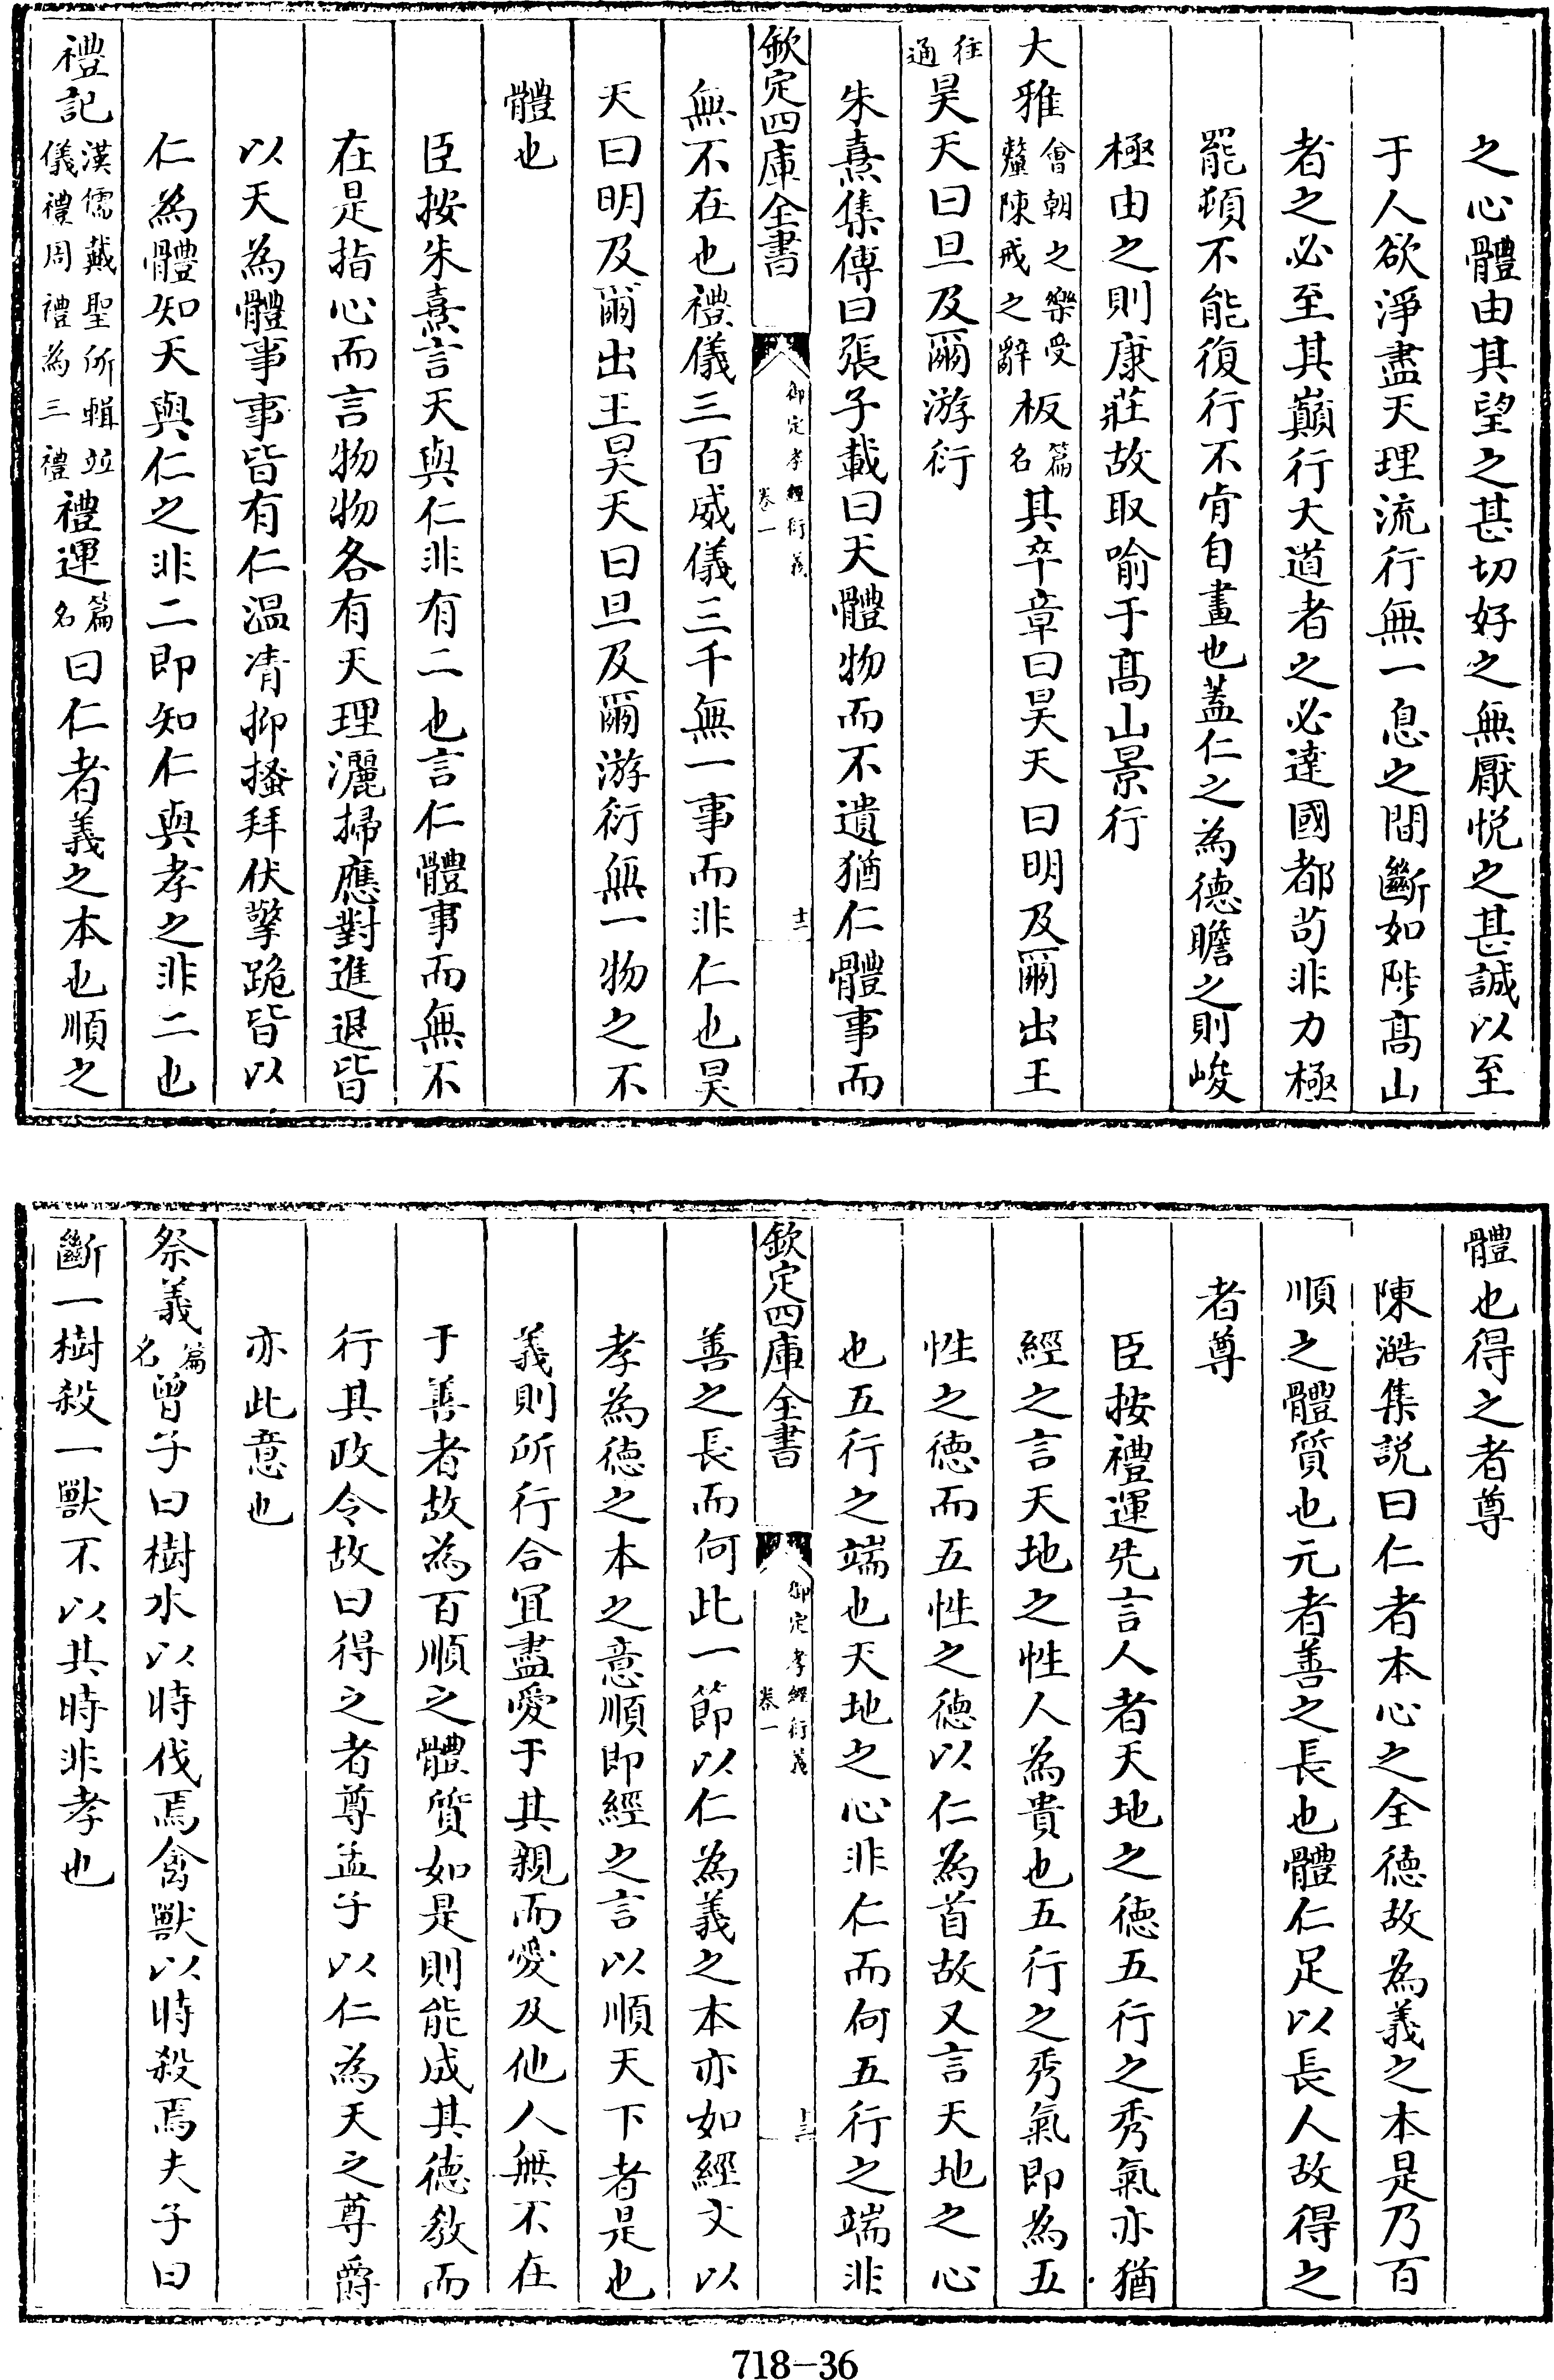 之心體由其望之甚切好之無厭悦之甚誠以至
于人欲淨盡天理流行無一息之間斷如陟高山
者之必至其巔行大道者之必達國都茍非力極
罷頓不能復行不肯自畫也蓋仁之為德瞻之則峻
極由之則康莊故取喻于高山景行
大雅會朝之樂受釐陳戒之辭板篇名其卒章曰昊天曰明及爾出王
往通昊天曰旦及爾游衍
朱熹集傳曰張子載曰天體物而不遺猶仁體事而
欽定四庫全書 御定孝經衍義 卷一 十二
無不在也禮儀三百威儀三千無一事而非仁也昊
天曰明及爾出王昊天曰旦及爾游衍無一物之不
體也
臣按朱熹言天與仁非有二也言仁體事而無不
在是指心而言物物各有天理灑掃應對進退皆
以天為體事事皆有仁溫凊抑搔拜伏擎跪皆以
仁為體知天與仁之非二即知仁與孝之非二也
禮記漢儒戴聖所輯並儀禮周禮為三禮禮運篇名曰仁者義之本也順之
體也得之者尊
陳澔集説曰仁者本心之全德故為義之本是乃百
順之體質也元者善之長也體仁足以長人故得之
者尊
臣按禮運先言人者天地之德五行之秀氣亦猶
經之言天地之性人為貴也五行之秀氣即為五
性之德而五性之德以仁為首故又言天地之心
也五行之端也天地之心非仁而何五行之端非
欽定四庫全書 御定孝經衍義 卷一 十三
善之長而何此一節以仁為義之本亦如經文以
孝為德之本之意順即經之言以順天下者是也
義則所行合宜盡愛于其親而愛及他人無不在
于善者故為百順之體質如是則能成其德教而
行其政令故曰得之者尊孟子以仁為天之尊爵
亦此意也
祭義篇名曾子曰樹木以時伐焉禽獸以時殺焉夫子曰
斷一樹殺一獸不以其時非孝也
718-36